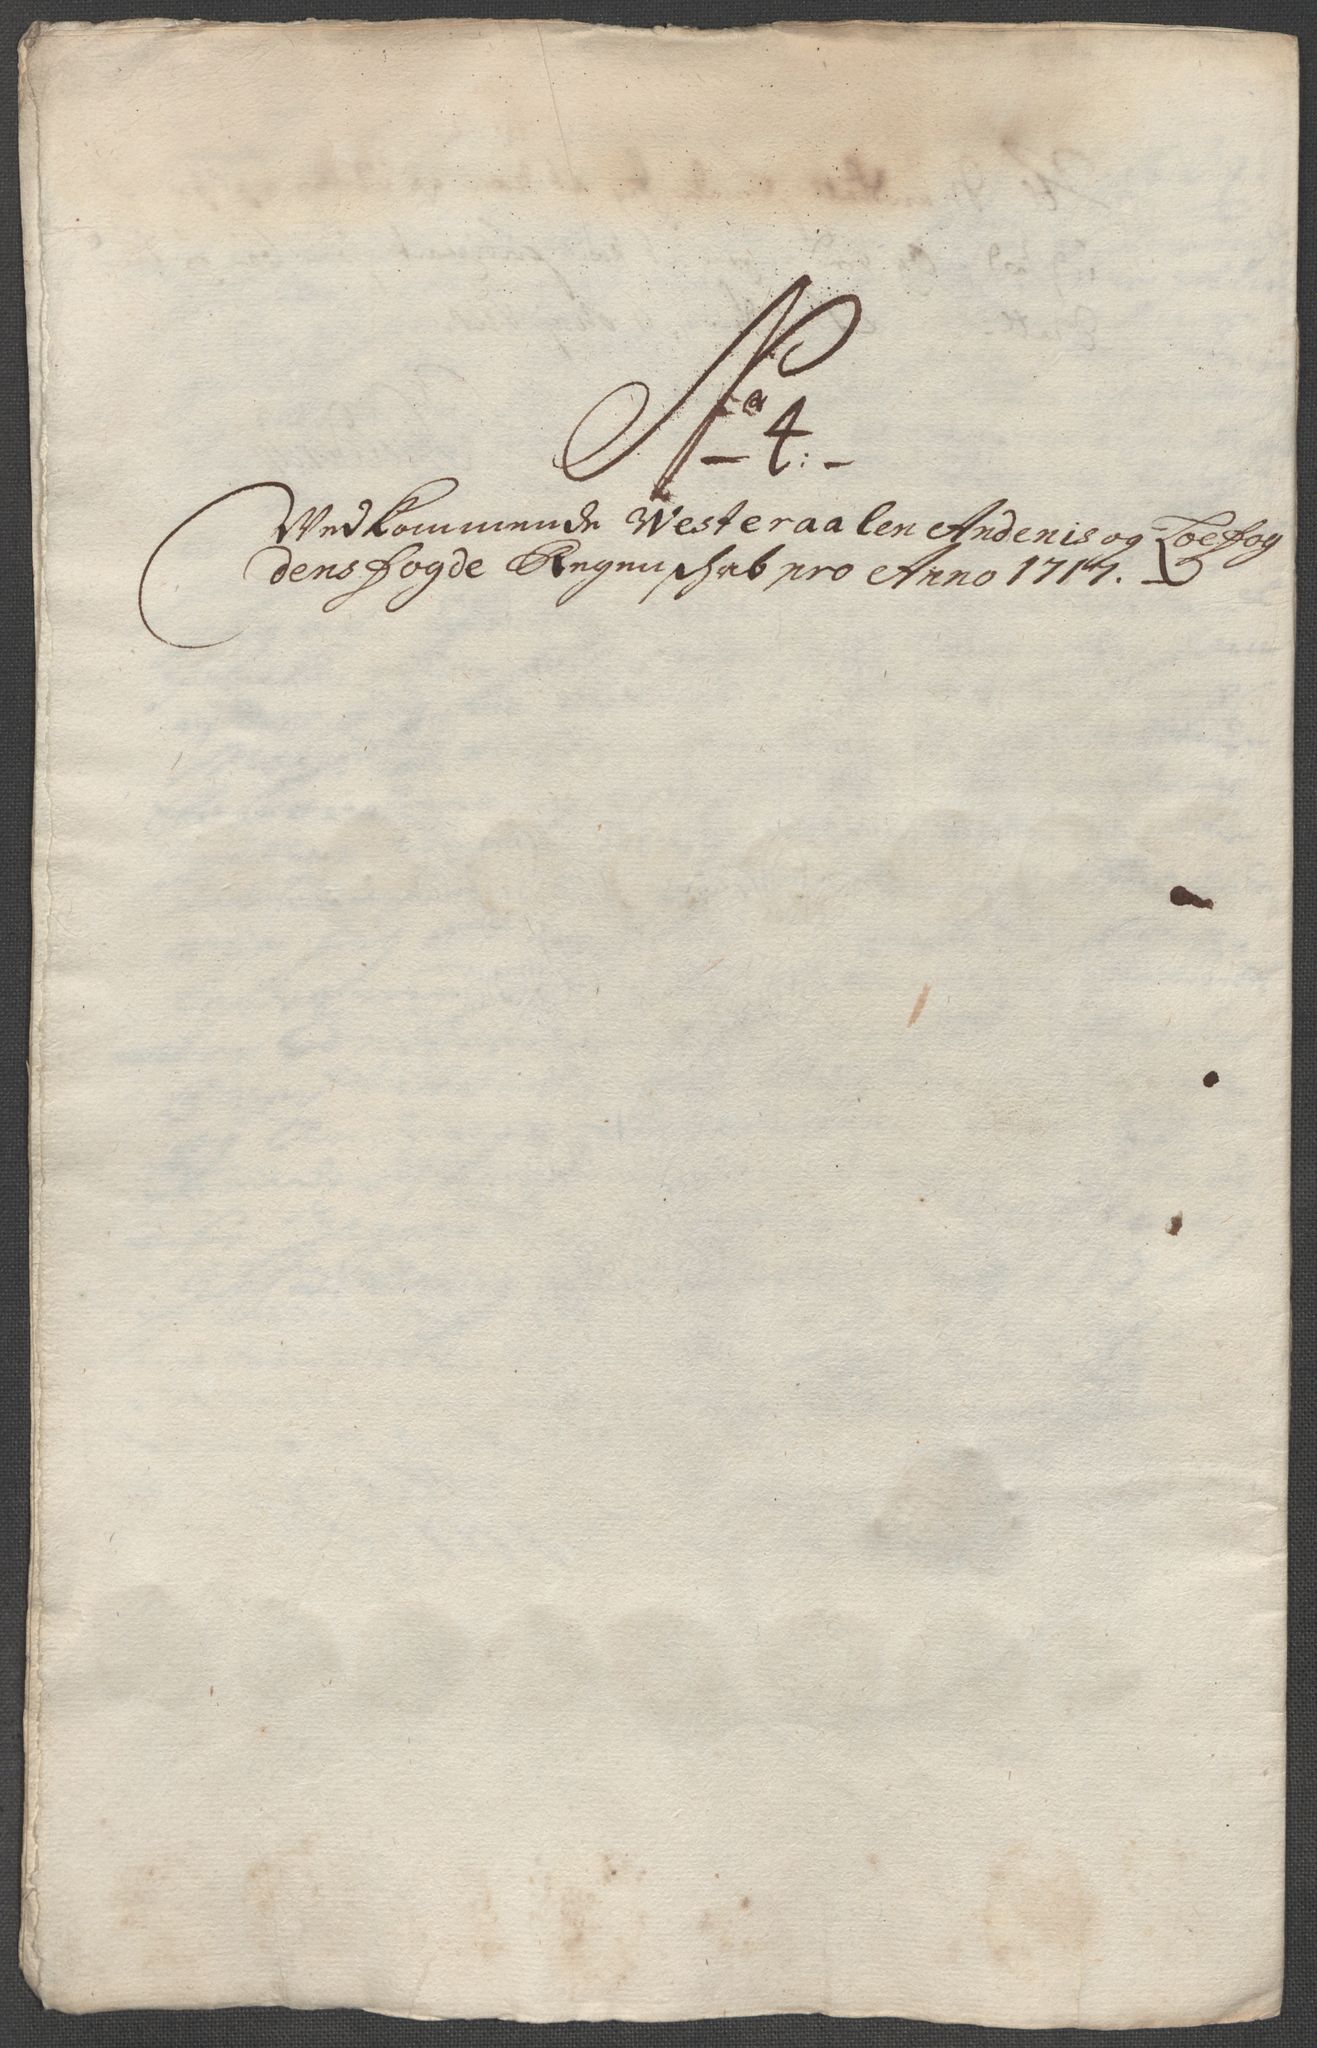 No 4:
Vedkommende Westeraalen Andenis og Loefog
dens fogde Regnschab pro Anno 1717.